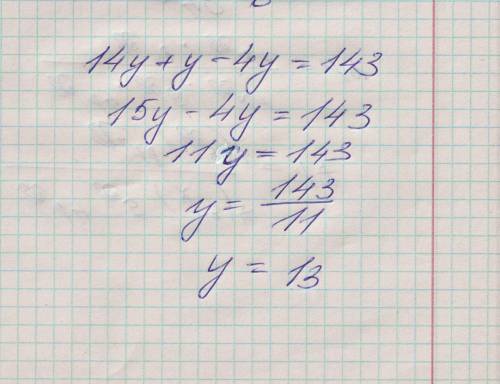 14y + y - 4y = 143
15y - 4y = 143
11y = 143
y = 143/11
y = 13